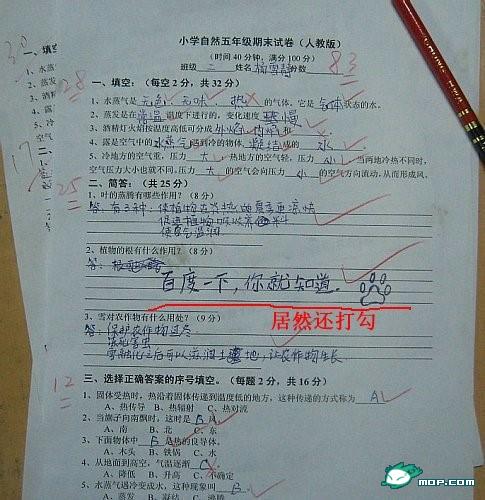 小学自然五年级期末试卷（人教版）
（时间 40 分钟，满分 100 分）
班级 三 姓名 分数 83
一、填空：（每空 2 分，共 32 分）
28
1、水蒸气是 无色 无味、热 的气体，它是 气体 状态的水。
2、蒸发是在 温度下进行的，变化速度 慢
3、酒精灯火焰按温度高低可分成 外焰 内焰 和
4、露是空气中的 水蒸气 遇到冷的物体，凝结成的 水
5、冷地方的空气重，压力 大，热地方的空气轻，压力 小 当两地冷热不同时，
空气压力大小也就不同，压力 大 的空气会向压力 小 的空气方向流动，从而形成风。
二、简答：（共 25 分）
25
1、叶的蒸腾有哪些作用？（8 分）
答：有三种：保植物在炎热的夏季更凉快
促进植物吸收养料
使空气湿润
2、植物的根有什么作用？（8 分）
答：
百度一下，你就知道.
居然还打勾
3、雪对农作物有什么用处？（9 分）
答：保护农作物过冬
冻死害虫
雪融化之后可以滋润土地，让农作物生长
三、选择正确答案的序号填空。（每题 2 分，共 16 分）
12
1、固体受热时，热沿着固体传递到温度低的地方，这种传递的方式称为 A
A、热传导 B、热辐射 C、热对流
2、当旗子向南飘时，这时是 B 风
A、南 B、北 C、东
3、下面物体中 B 是热的良导体。
A、木头 B、铁锅 C、水
4、从地面到高空，气温逐渐
A、降低 B、升高 C、不确定
5、水蒸气遇冷变成水，这种现象叫 B
A、蒸发 B、凝结 C、沸腾
MOP.com